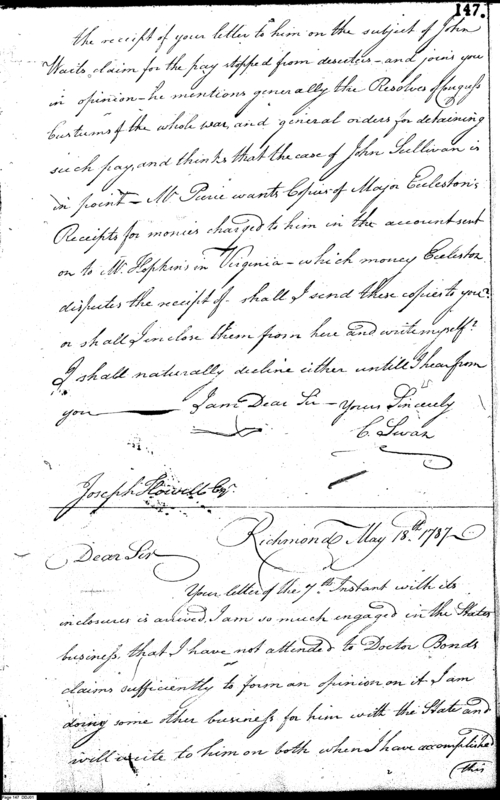 147.
the receipt of your letter to him on the subject of John
Waits claim for the pay stopped from deserters - and joins you
in opinion - he mentions generally the Resolves of Congress
Customs of the whole war, and general orders for detaining
such pay, and thinks that the case of John Sullivan is
in point - Mr. wants Copies of Major Eccleston's
Receipts for monies charged to him in the account sent
on to Mr. Hopkins in Virginia - which money Eccleston
disputes the receipt of. shall I send these copies to you?
or shall I inclose them from here and write myself?
I shall naturally decline either untill I hear from
you — I am Dear Sir - Yours Sincerely
C. Swan
Joseph Howell Esqr.
Richmond May 18th. 1787
Dear Sir
Your letter of the 7th. Instant with its
inclosures is arrived. I am so much engaged in the States
business that I have not attended to Doctor Bonds
claims sufficiently to form an opinion on it I am
doing some other business for him with the State and
will write to him on both when I have accomplished
(this
Page 147 DDJ01